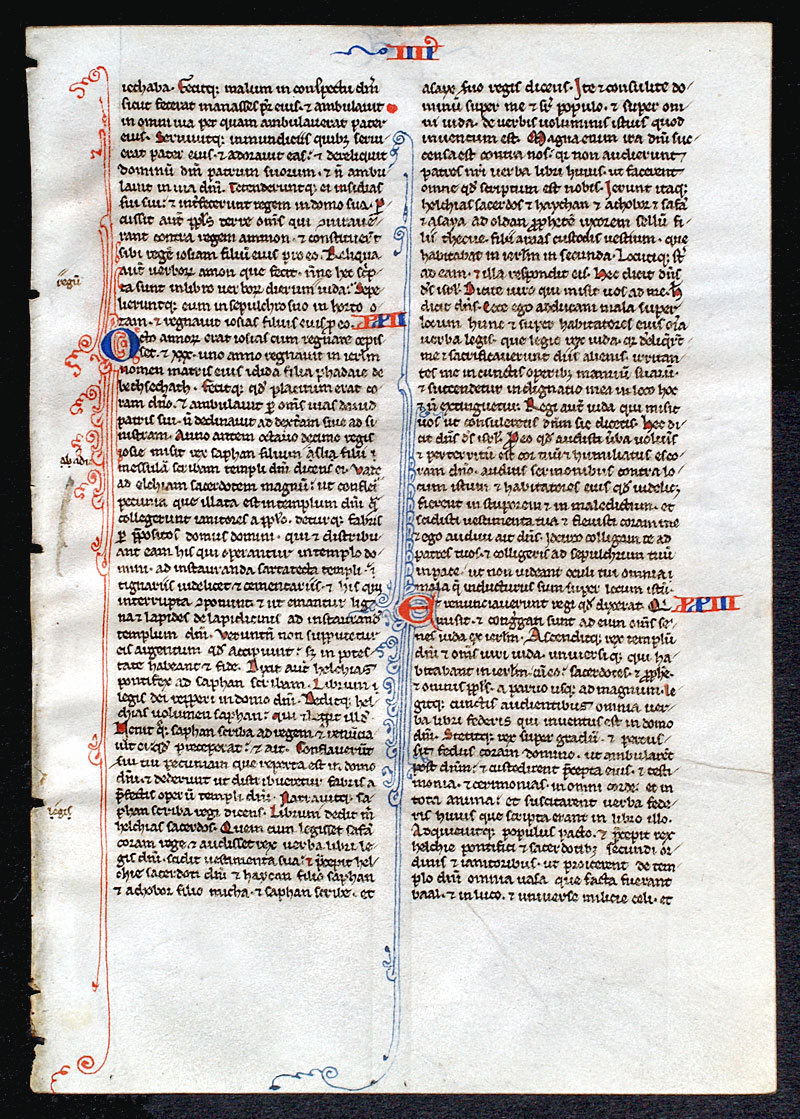 IIII
iethaba. Fecitq; malum in conspectu dn̄i
sicut fecerat manasses p̄r eius. & ambulauit
in omni uia per quam ambulauerat pater
eius. Seruiuitq; inmundiciis quibz serui
erat pater eius. & adorauit eas. & dereliquit
dominū dn̄m patrum suorum. & n̄ ambu
lauit in uia dn̄i. Tetenderuntq; ei insidias
sui sui. & interfecerunt regem in domo sua. P
cussit aut̄ ppl̄s terre om̄s qui ↄiuraue
rant contra regem ammon. & constituert̄
sibi regē iosiam filiū eius pro eo. Reliqua
aut̄ uerborꝝ amon que fecit. n̄ne hec sc̄p
ta sunt in libro uerborꝝ dierum iuda. Sepe
lieruntq; eum in sepulchro suo in horto o
zam. & regnauit iosias filius eius p̄ eo. XXII
Octo annorꝝ erat iosias cum regnare cepis
set. & xxx. uno anno regnauit in ierl̄m
nomen matris eius idida filia phadaie de
bethsechath. Fecitq; qd̄ placitum erat co
ram dn̄o. & ambulauit p̄ om̄s uias dauid
patris sui. n̄ declinauit ad dext̄am siue ad si
nistram. Anno autem octauo decimo regis
iosie misit rex saphan filium aslia filii
messulā scribam templi dn̄i dicens ei. Vade
ad elchiam sacerdotem magnū. ut conflet̄
pecunia que illata est in templum dn̄i q̄
collegerunt ianitores a ppl̄o. deturq; fabris
p̄ p̄positos domus domini. qui & distribu
ant eam his qui operantur in templo do
mini. ad instauranda sartatecta templi. i
tignariis uidelicet & cementariis. & his qui
interrupta ↄponunt & ut emantur lig
na & lapides de lapidicinis ad instaurand̄
templum dn̄i. Verumtn̄ non supputetur
eis argentum qd̄ accipiunt. sꝫ in potes
tate habeant & fide. Dixit aut̄ helchias
pontifex ad saphan scribam. Librum
legis dei repperi in domo dn̄i. Deditq; hel
chias uolumen saphan. qui & legit illd̄.
Venit q; saphan scriba ad regem & renūcia
uit ei qd̄ preceperat. & ait. Conflauerūt
sui tui pecuniam que reperta est in domo
dn̄i. & dederunt ut distribueretur fabris a
p̄fectis oper ū templi dn̄i. Narrauitq; sa
phan scriba regi dicens. Librum dedit m̄
helchias sacerdos. Quem cum legisset safā
coram rege. & audisset rex uerba libri le
gis dn̄i. scidit uestimenta sua. & p̄cepit hel
chie sacerdoti dn̄i & haycan filio saphan
& achobor filio micha. & saphan scribe. et
regū
legis
asaye suo regis dicens. Ite & consulite do
minū super me & sr̄ populo. & super om
ni iuda. de uerbis uoluminis istius quod
inuentum est. Magna enim ira dn̄i suc
censa est contra nos. qr̄ non audierunt
patres nr̄i uerba libri huius. ut facerent
omne qd̄ scriptum est nobis. Ierunt itaq;
helchias sacerdos & haychan & achobor & safā
& asaya ad oldan p̄phetē uxorem sellū fi
lii thecue. filii araas custodis uestium. que
habitabat in ierl̄m in secunda. Locutiq; st̄
ad eam. & illa respondit eis. Hec dicit dn̄s
d̄s isrl̄. Dicite uiro qui misit uos ad me. H̄
dicit dn̄s. Ecce ego adducam mala super
locum hunc & super habitatores eius oīa
uerba legis. que legit rex iuda. qr̄ deliquert̄
me & sacrificauerunt diis alienis. irritan
tes me in cunctis operibꝫ manuū suarū.
& succendetur indignatio mea in loco hoc
& n̄ extinguetur. Regi aut̄ iuda qui misit
uos ut consuleretis dn̄m sic dicetis. Hec di
cit dn̄s d̄s isrl̄. Pro eo qd̄ audisti uerba uolumīs
& perterritū est cor tuū & humiliatus es co
ram dn̄o. auditis sermonibus contra lo
cum istum & habitatores eius qd̄ uidelicꝫ
fierent in stuporem & in maledictum. et
scidisti uestimenta tua & fleuisti coram me
& ego audiui ait dn̄s. idcirco colligam te ad
patres tuos. & colligeris ad sepulchrum tuū
in pace. ut non uideant oculi tui omnia
mala q̄ inducturus sum super locum istū.
Et renunciauerunt regi qd̄ dixerat. Q XXIII
misit. & congr̄gati sunt ad eum om̄s se
nes iuda & ierl̄m. Ascenditq; rex templū
dn̄i & om̄s uiri iuda. uniuersi q; qui ha
bitabant in ierl̄m cū eo. sacerdotes. & p̄phe.
& omnis ppl̄s. a paruo usq; ad magnum. le
gitq; cunctis audientibus omnia uer
ba libri federis qui inuentus est in domo
dn̄i. Stetitq; rex super gradū. & percus
sit fedus coram domino. ut ambularent
post dn̄m. & custodirent p̄cepta eius. & testi
monia. & cerimonias in omni corde. et in
tota anima. et suscitarent uerba fede
ris huius que scripta erant in libro illo.
Adquieuitq; populus pacto. & p̄cepit rex
helchie pontifici & sacerdotibꝫ secundi or
dinis & ianitoribus. ut proicerent de tem
plo dn̄i omnia uasa que facta fuerant
baal. & in luco. & uniuerse milicie celi. et